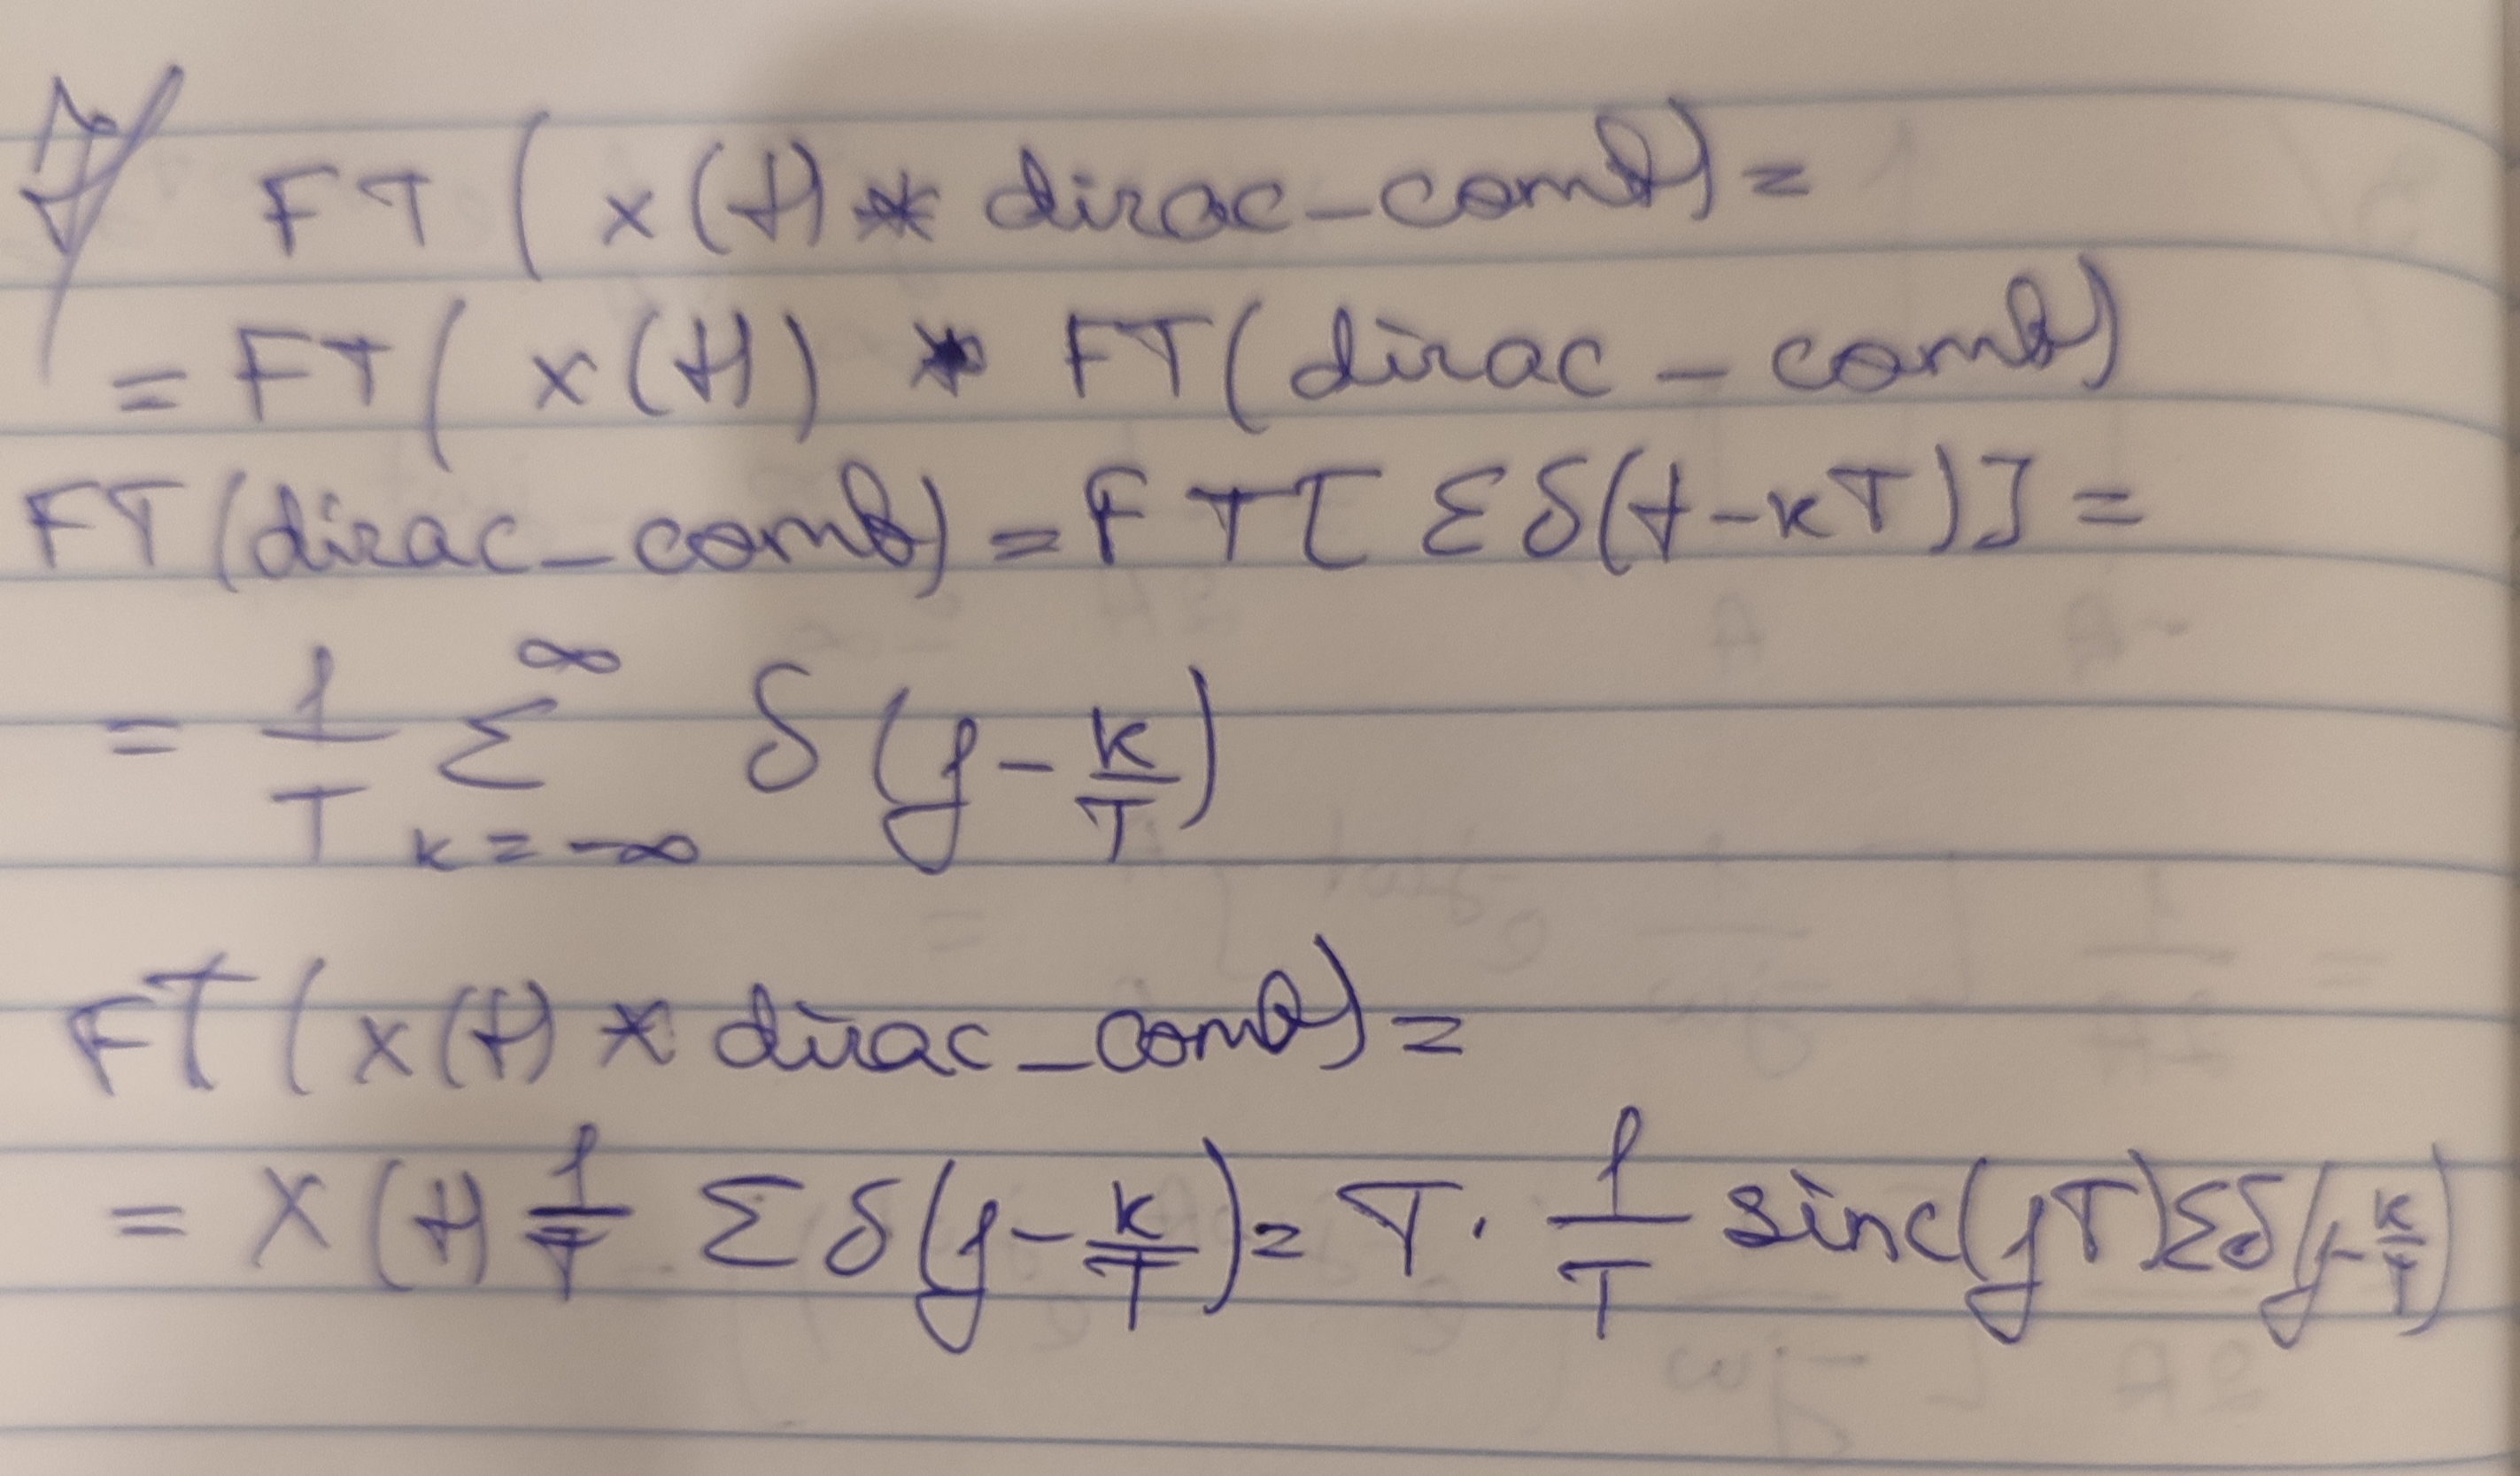 FT ( x(t) * dirac-comb) =
= FT( x(t) ) * FT( dirac - comb)
FT (dirac_comb) = FT[ Σ δ(t-kT) ] =
= 1/T Σ_{k=-∞}^{∞} δ (f - k/T)
FT ( x(t) * dirac_comb) =
= X (f) 1/T Σ δ(f - k/T) = T · 1/T sinc(fT) Σδ(f - k/T)